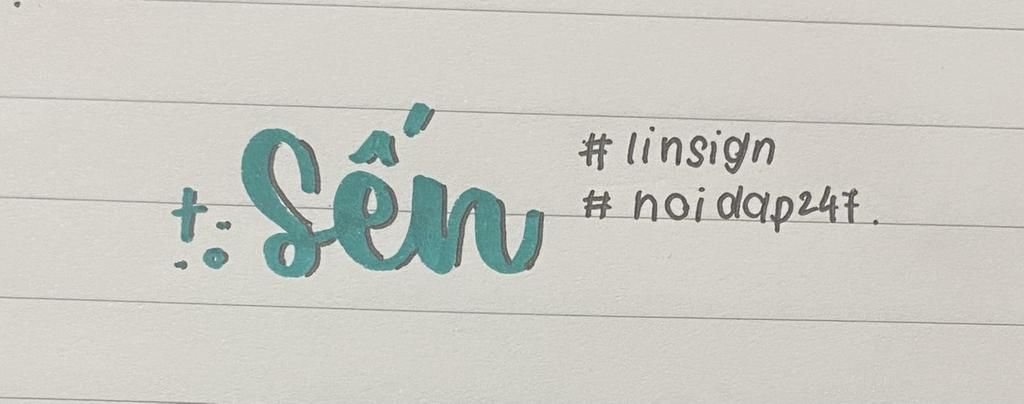 Sến
# linsign
# noidap247.